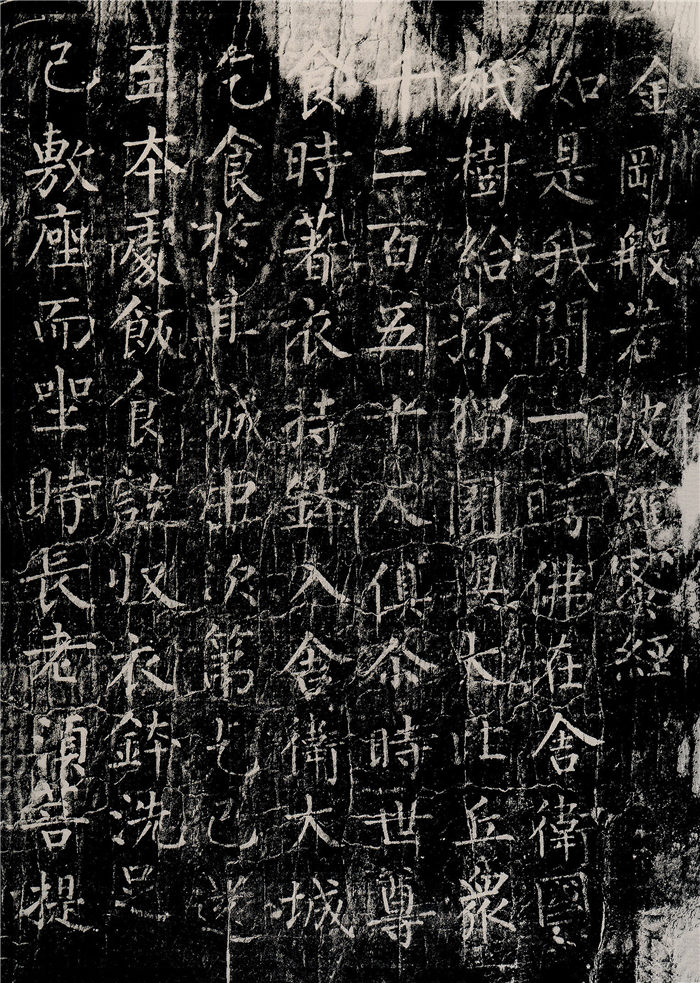 金剛般若波羅蜜經
如是我聞一時佛在舍衛國
祇樹給孤獨園與大比丘衆
千二百五十人俱尒時世尊
食時著衣持鉢入舍衛大城
乞食於其城中次第乞已還
至本處飯食訖收衣鉢洗足
已敷座而坐時長老湏菩提